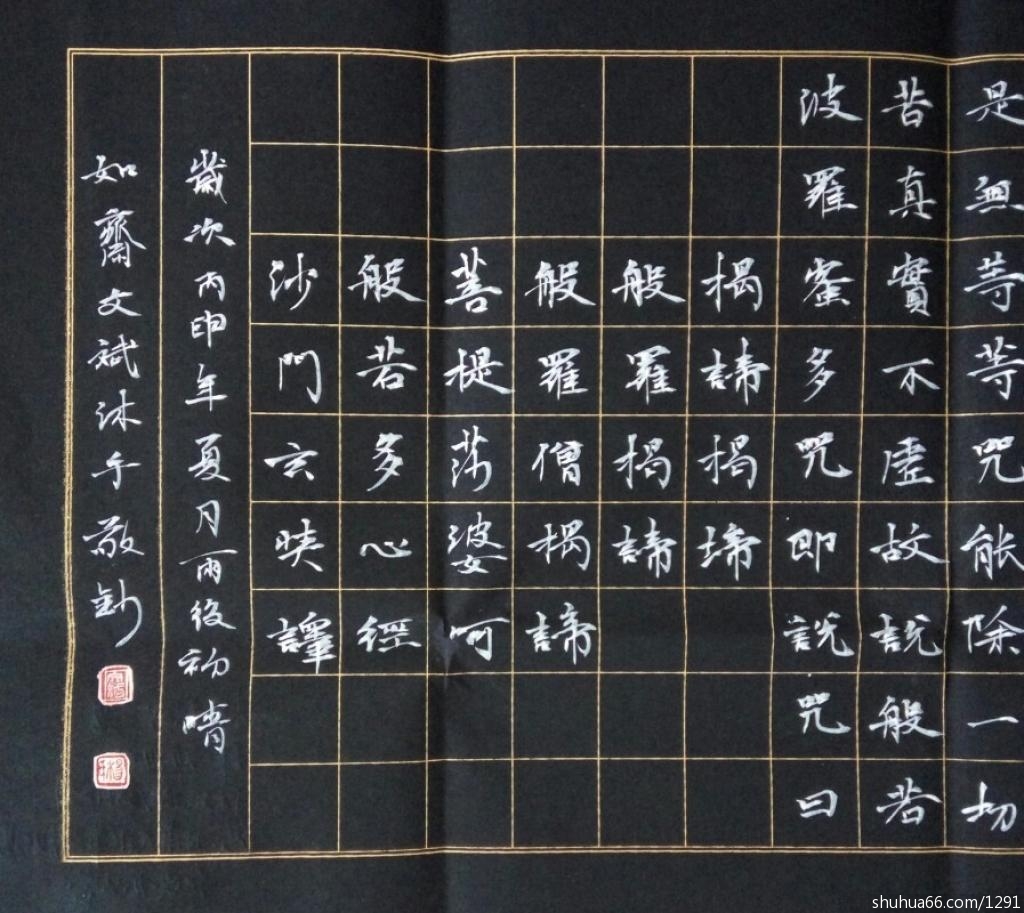 是無等等咒能除一切
苦真實不虛故說般若
波羅蜜多咒即說咒曰
揭諦揭諦
般羅揭諦
般羅僧揭諦
菩提莎婆呵
般若多心經
沙門玄奘譯
歲次丙申年夏月雨後初晴
如齋文斌沐手敬鈔
shuhua66.com/1291